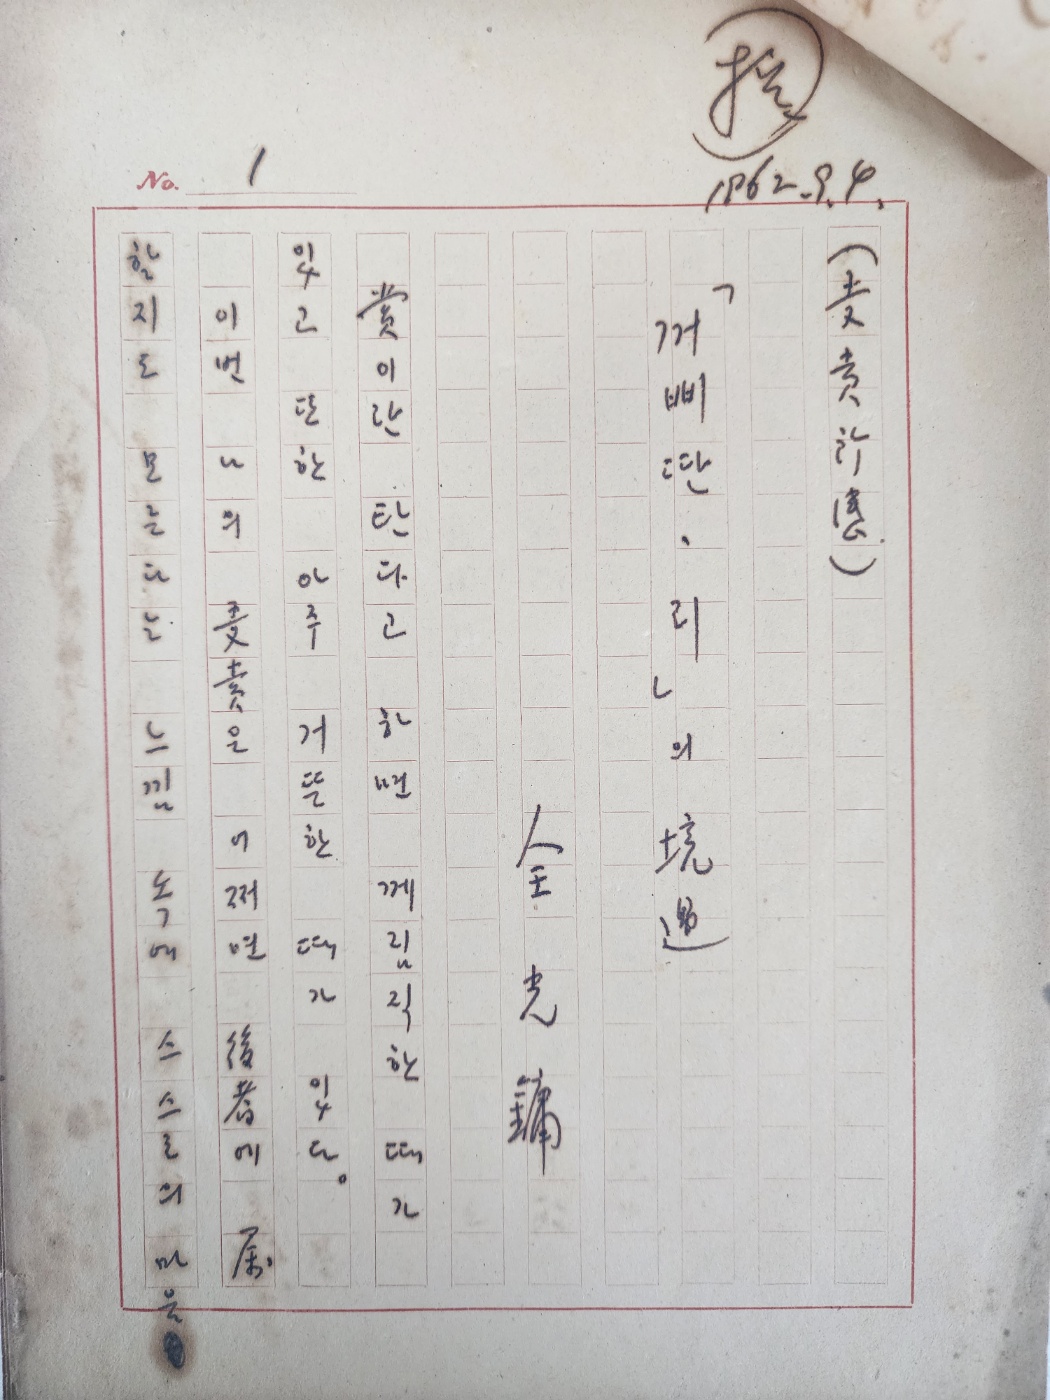 1962.9.4.
No. 1
(受賞所感)
「꺼삐딴·리」의 境遇
全光鏞
賞이란 탄다고 하면 께림직한 때가
있고 또한 아주 거뜬한 때가 있다。
이번 나의 受賞은 어쩌면 後者에 属
할지도 모른다는 느낌 속에 스스로의 마음